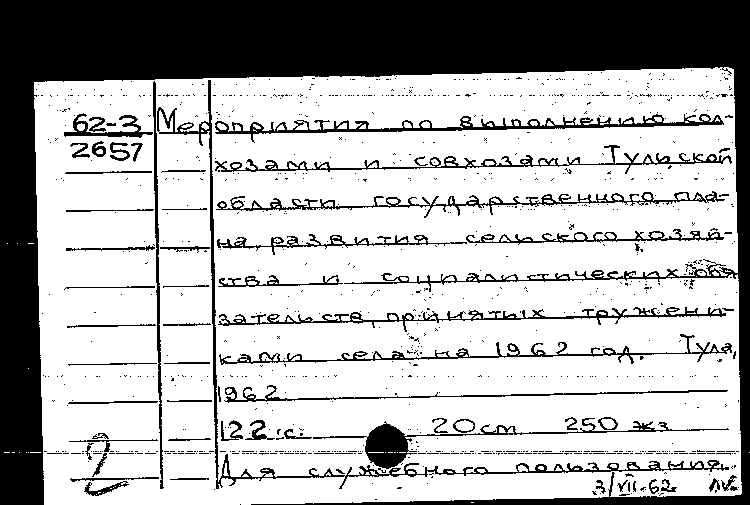 62-3 Мероприятия по выполнению кол-
2657 хозами и совхозами Тульской
области государственного пла-
на развития сельского хозяй-
ства и социалистических обя
зательств, принятых тружени-
ками села на 1962 год. Тула,
1962.
122 с. 20 cm 250 экз
2 Для служебного пользования.
3/VII-62